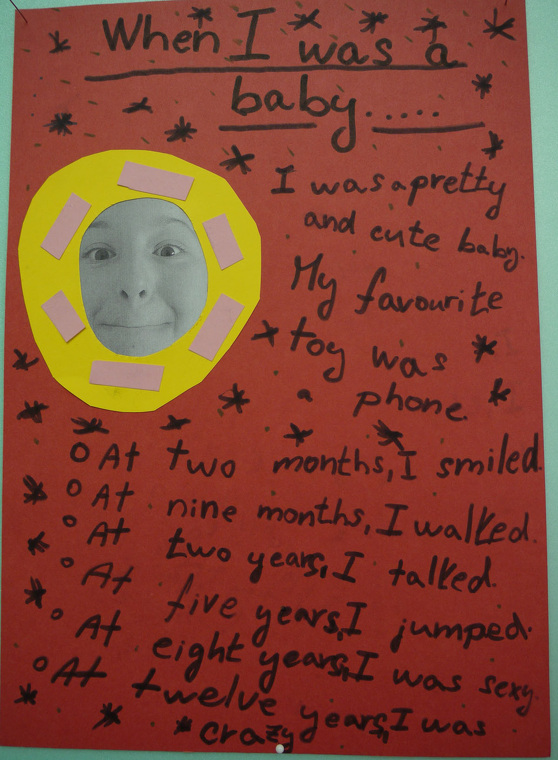 When I was a
baby.....
I was a pretty
and cute baby.
My favourite
toy was
a phone.
o At two months, I smiled.
o At nine months, I walked.
o At two years, I talked.
o At five years, I jumped.
o At eight years, I was sexy.
o At twelve years, I was
crazy